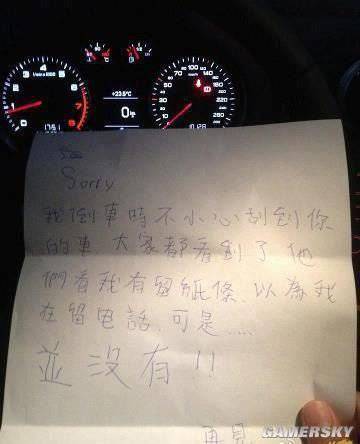 1/min x 1000
+23.5°C
Sorry
我倒車時不小心刮到你
的車 大家都看到了 他
們看我有留紙條、以為我
在留電話、可是......
並沒有!!
再見
GAMERSKY